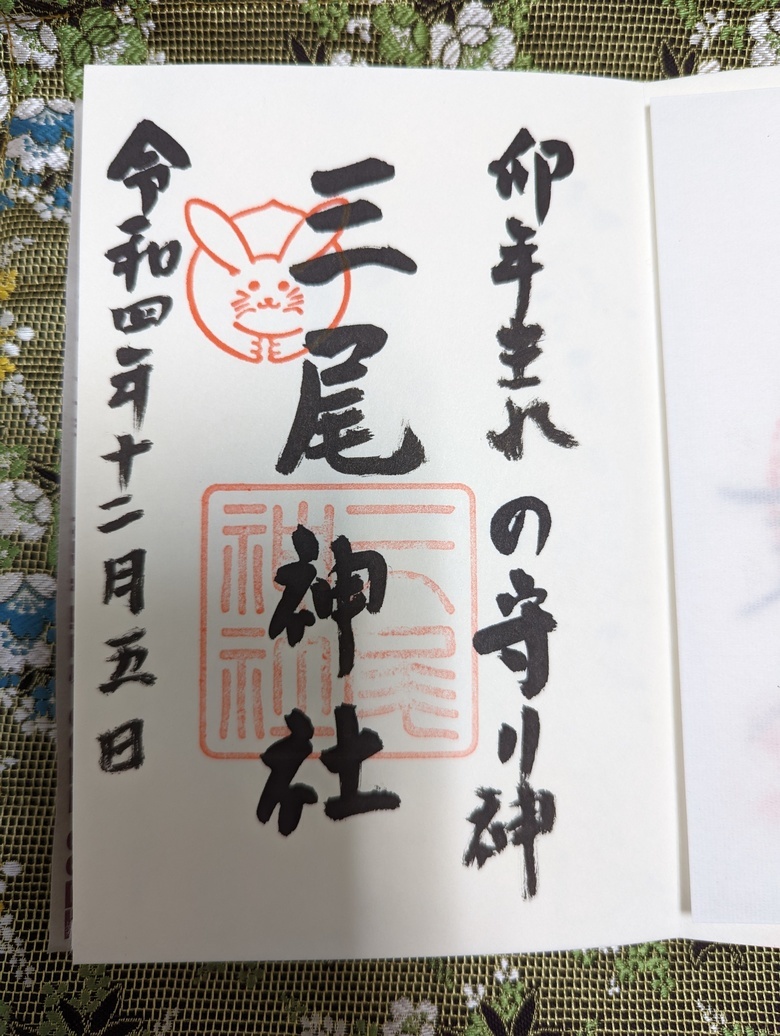 卯年生れの守り神
三尾神社
三尾神社
令和四年十二月五日